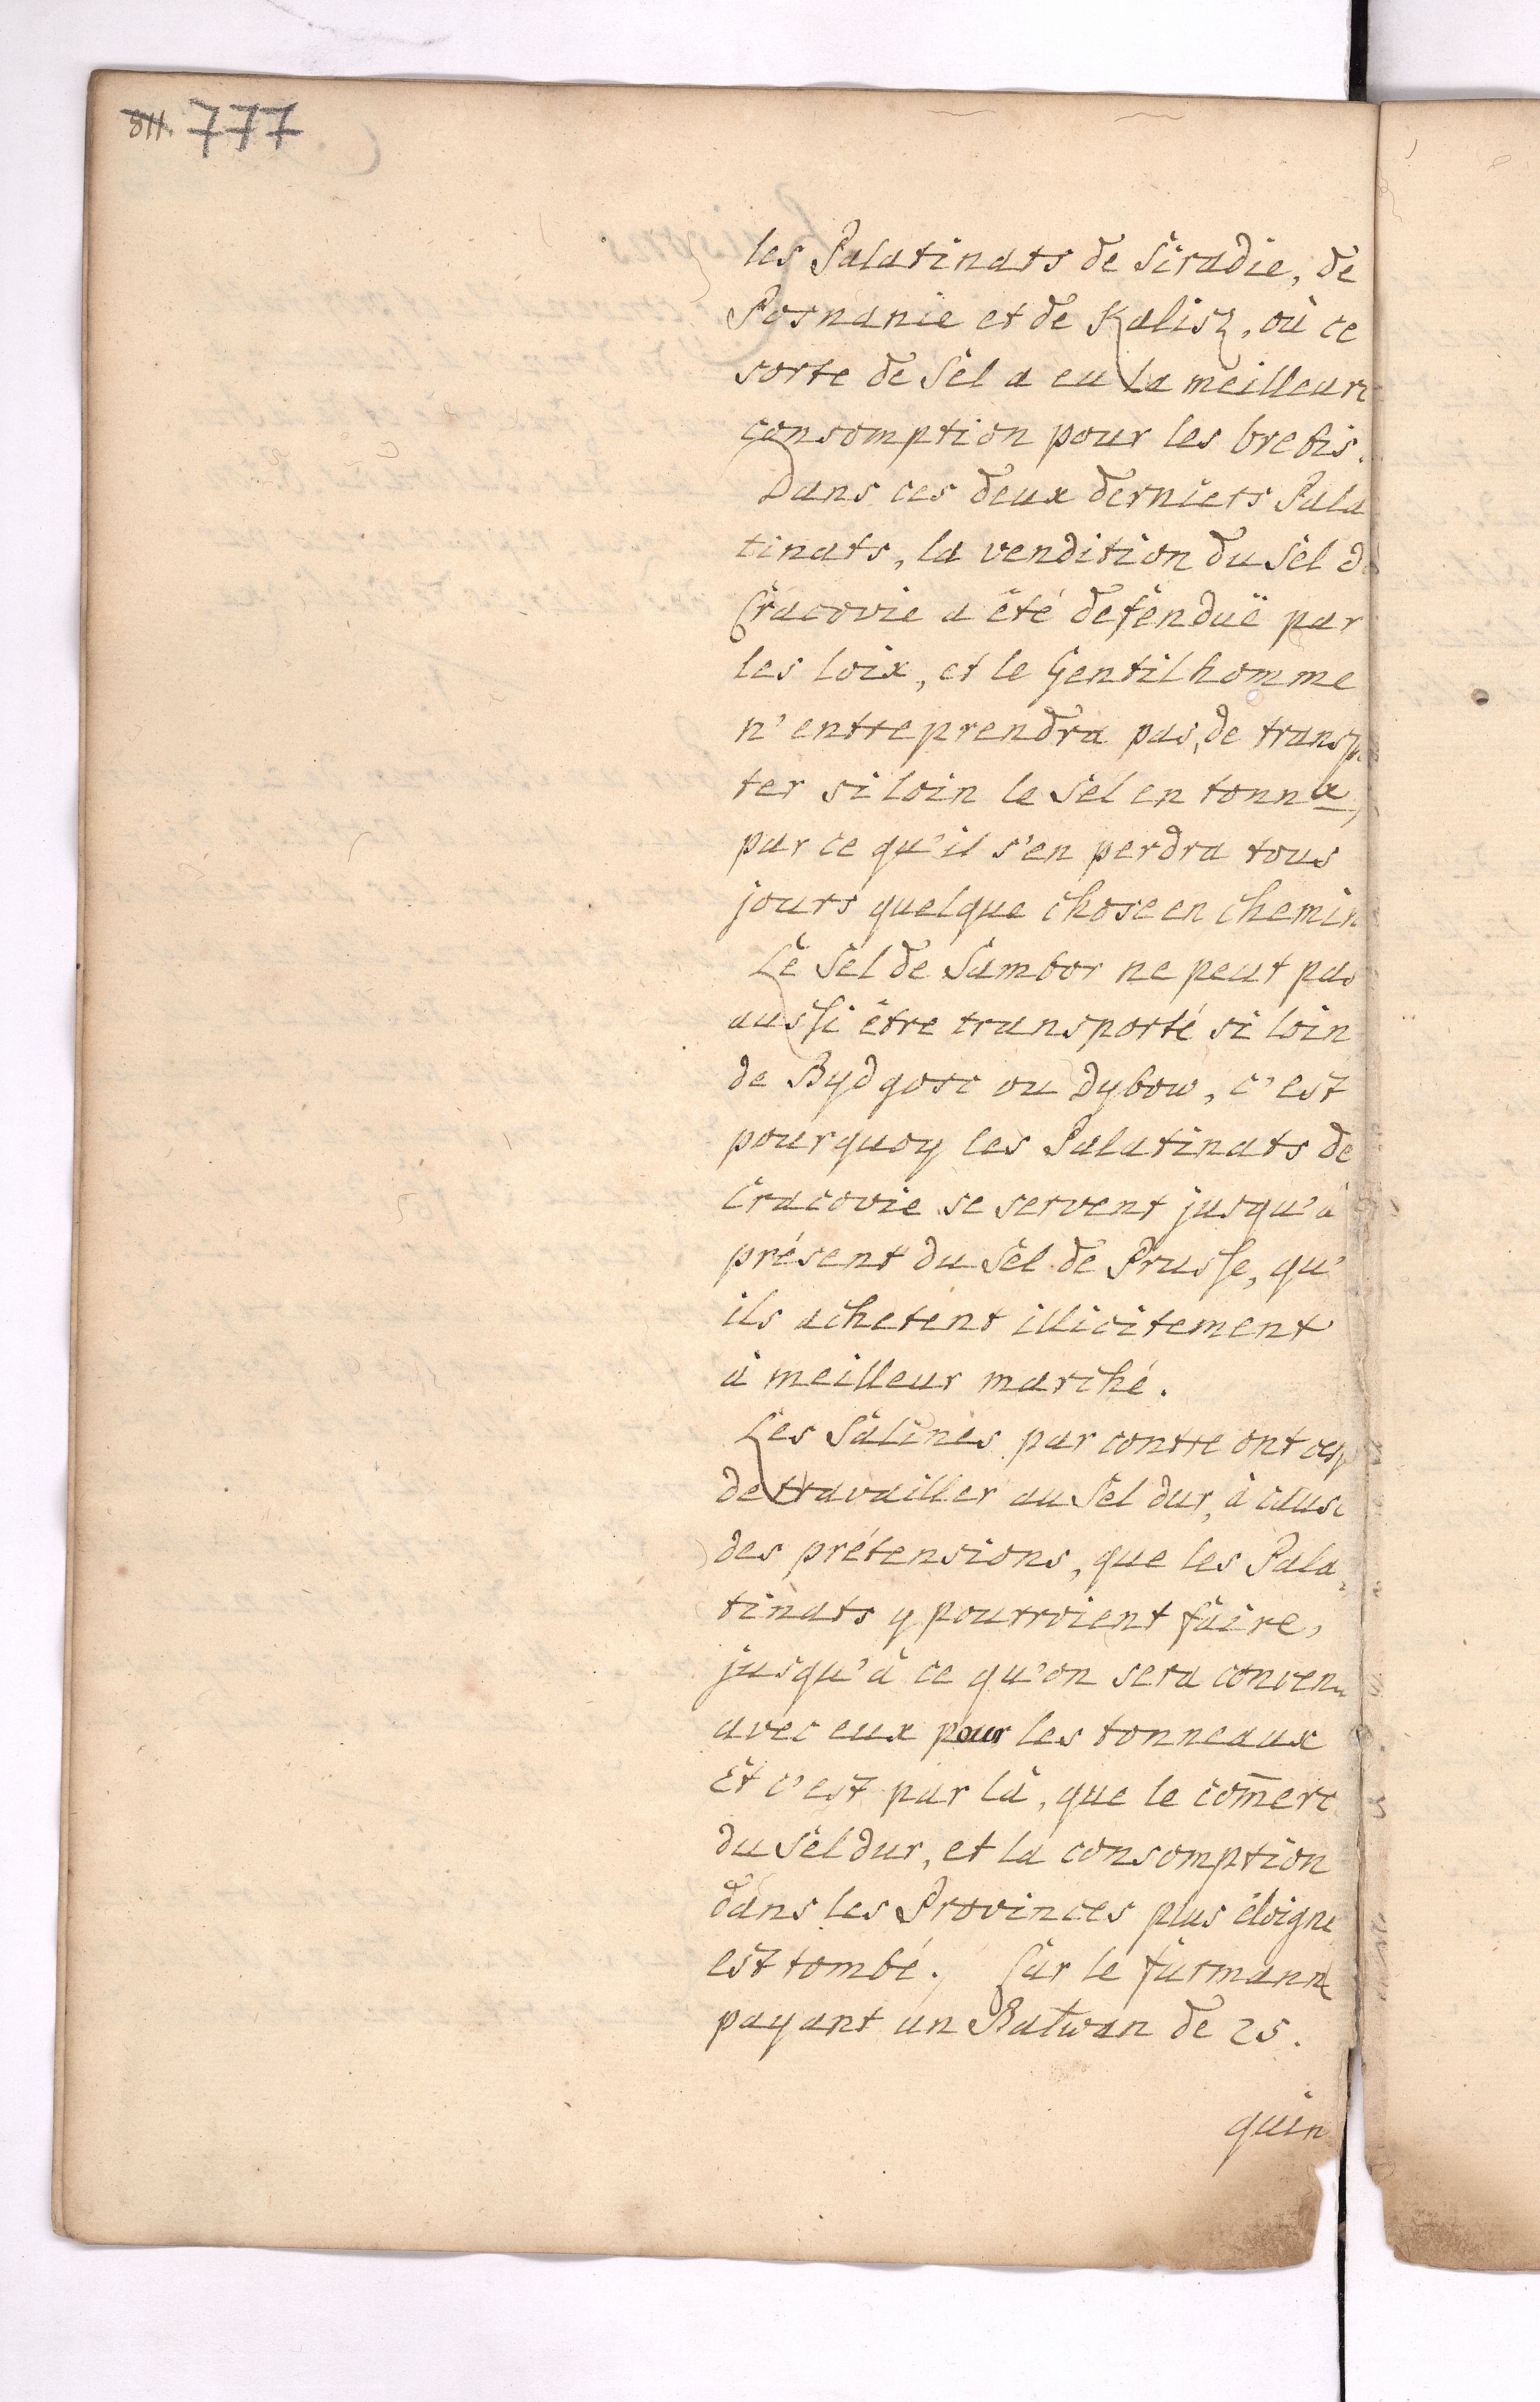 811. 777
les Palatinats de Siradie, de
Posnanie et de Kalisz, où ce
sorte de Sel a eu la meilleur
consomption pour les brebis.
Dans ces deux derniers Pala
tinats, la vendition du Sel d
Cracovie a été defenduë par
les loix, et le Gentilhomme
n'entreprendra pas, de transp
ter si loin le Sel en tonnx,
par ce qu'il s'en perdra tous
jours quelque chose en chemin
Le Sel de Sambor ne peut pas
aussi être transporté si loin
de Bydgosc ou Dybow, c'est
pourquoy les Palatinats de
Cracovie se servent jusqu'à
présent du Sel de Prusse, qu'
ils achetent illicitement
à meilleur marché.
Les Salines par contre ont
de travailler au Sel dur, à cause
des prétensions, que les Pala
tinats y pourroient faire,
jusqu'à ce qu'on sera convenu
avec eux pour les tonneaux
Et c'est par là, que le com̄erc
du Sel dur, et la consomption
dans les Provinces plus éloigne
est tombé. Car le furmann
payant un Balwan de 25.
quin